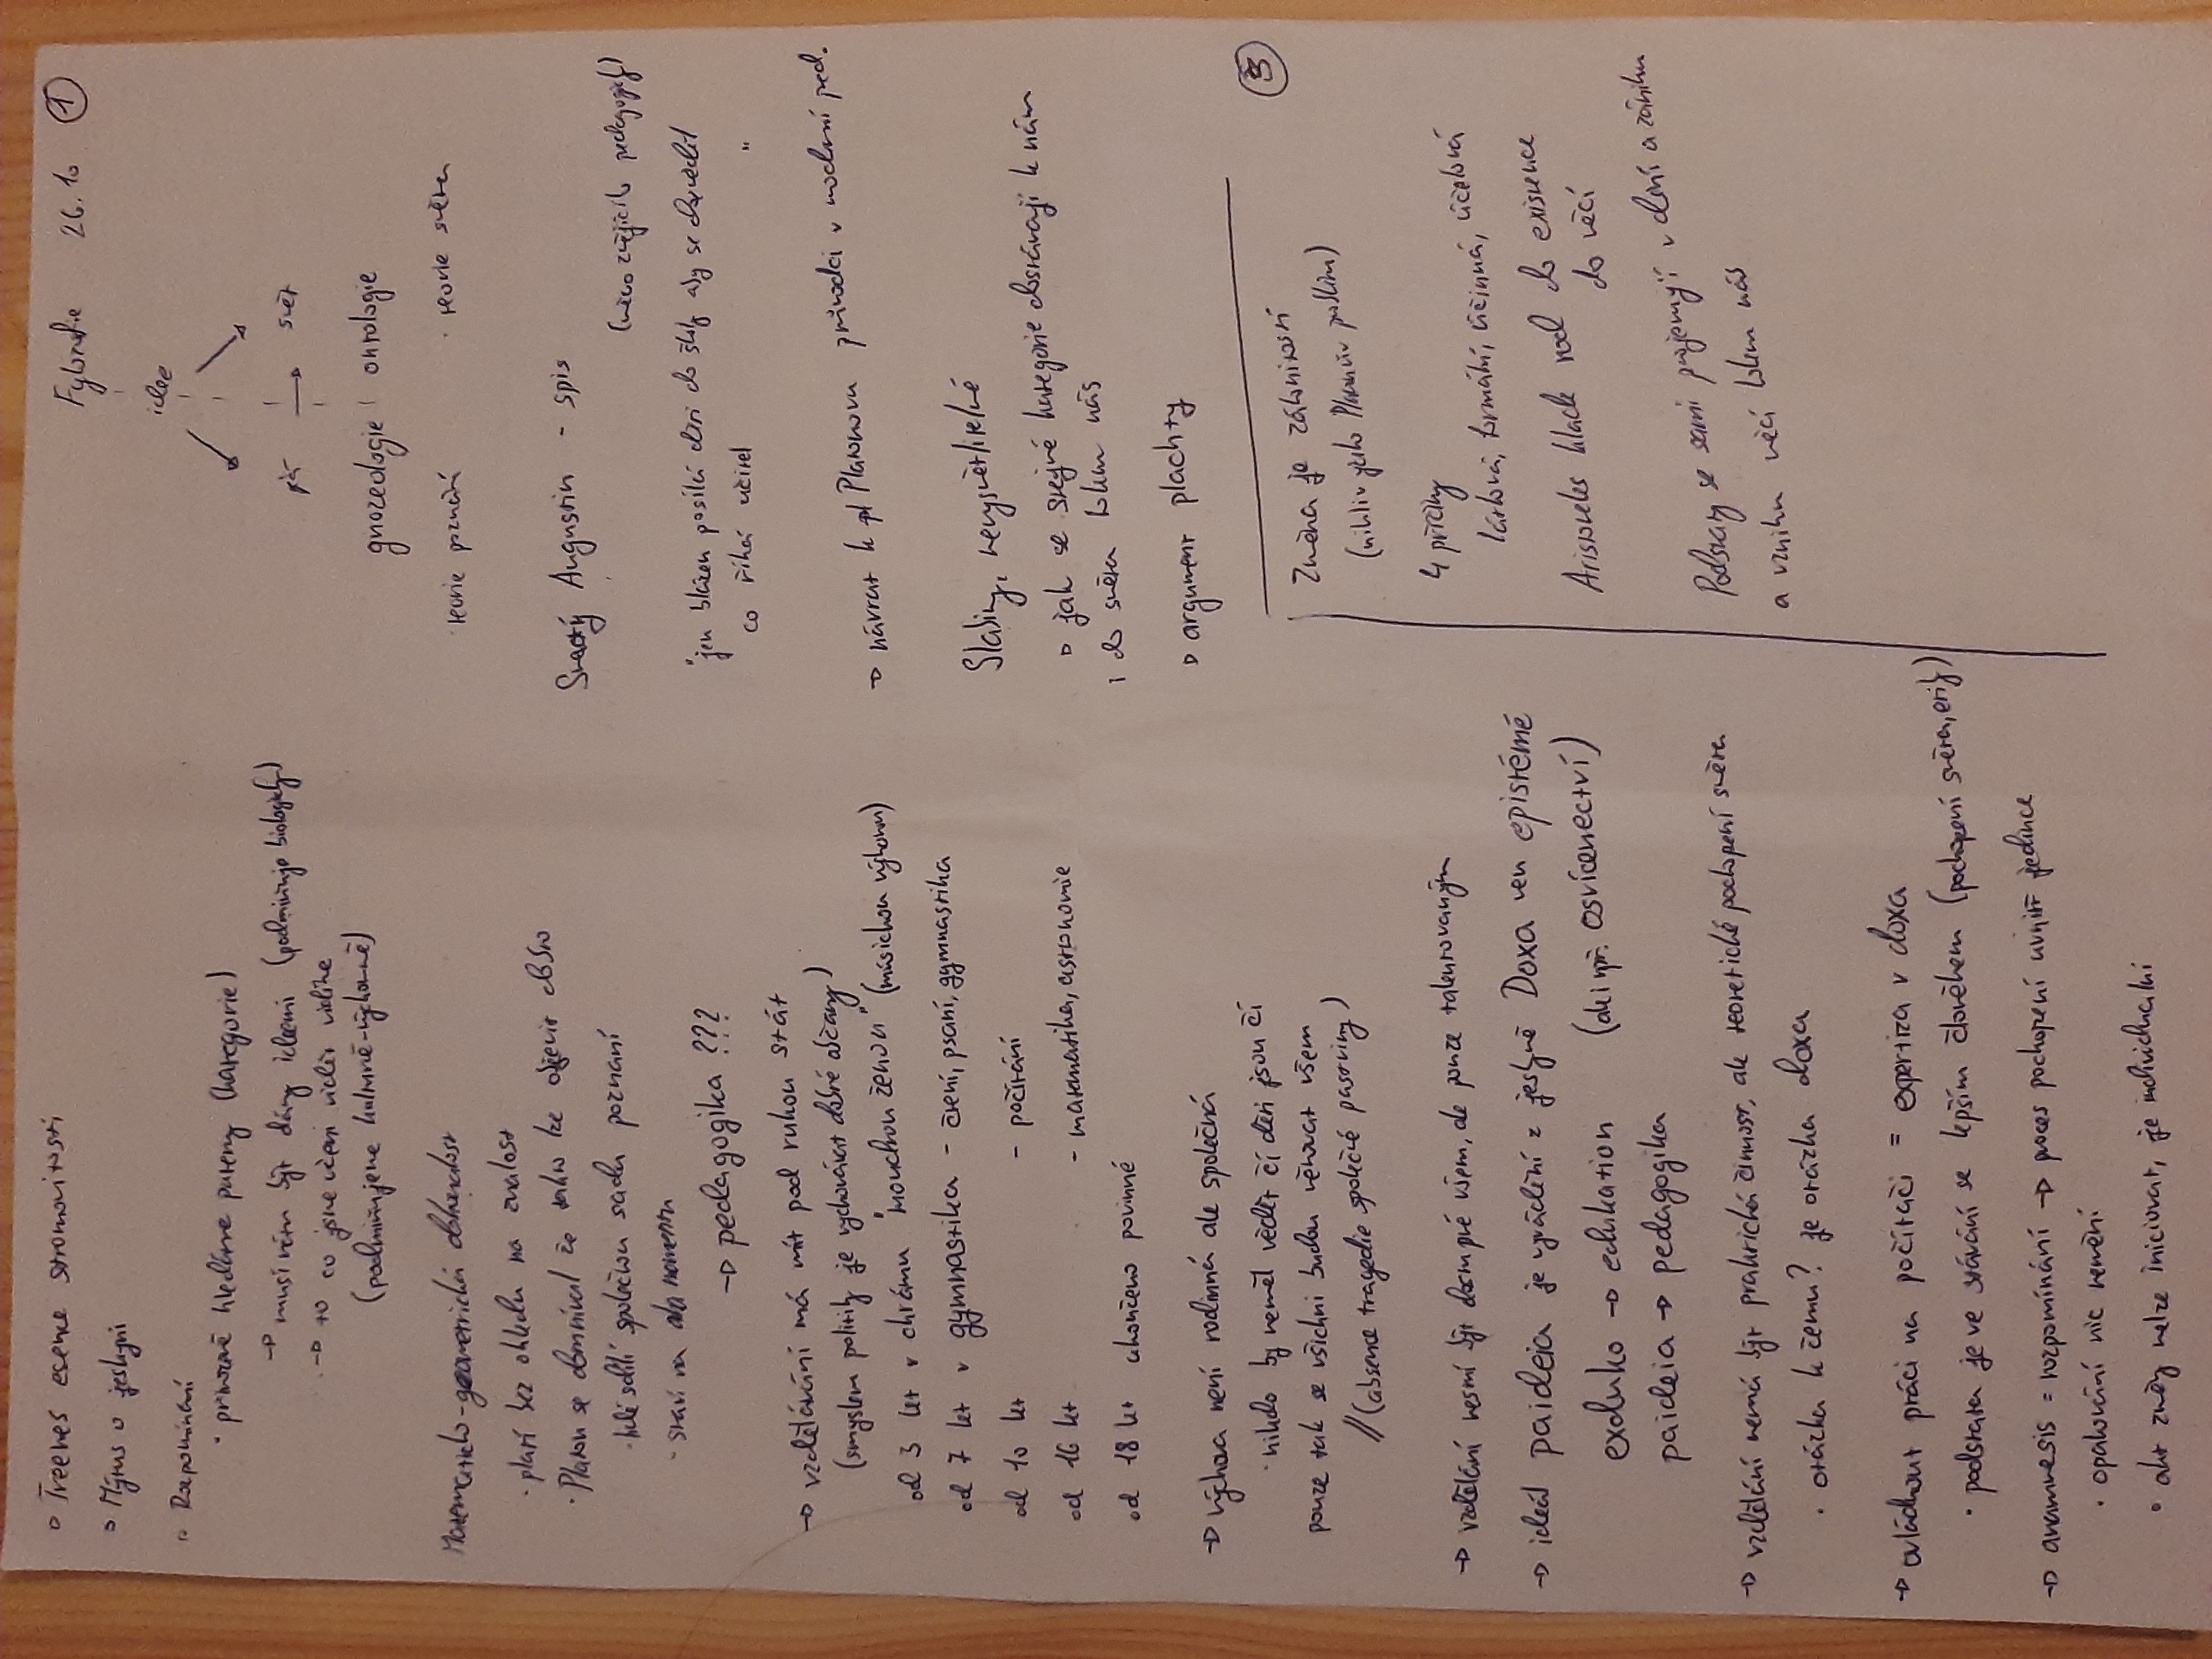 Fylosofie 26.10 ①
◦ Treehes esence stromovitosti
◦ Mýtus o jeskyni
◦ Rozpomínání
· primárně hledáme patterny (kategorie)
→ musí nám být dány ideemi (podmiňuje biologicky)
→ to co jsme učeni vidět vidíme
(podmiňujeme kulturně-výchovně)
Matematicko-geometrická dokonalost
· platí bez ohledu na znalost
· Platon se domníval že takto lze objevit dobro
· lidé sdílí společnou sadu poznání
· staví na
→ pedagogika ???
→ vzdělávání má mít pod rukou stát
(smyslem politiky je vychovávat dobré občany)
od 3 let v chrámu "moudrou ženou" (músickou výhovou)
od 7 let v gymnastika - čtení, psaní, gymnastika
od 10 let - počítání
od 16 let - matematika, astronomie
od 18 let ukončeno povinné
→ výhova není rodinná ale společná
· nikdo by neměl vědět čí děti jsou čí
pouze tak se všichni budou věnovat všem
// (absence tragedie společné pastviny)
→ vzdělání nesmí být dostupné všem, ale pouze talentovaným
→ ideál paideia je vyvádění z jeskyně Doxa ven epistémé
(ani např. osvícenectví)
exduko → edukation
paideia → pedagogika
→ vzdělání nemá být praktická činnost, ale teoretické pochopení světa
· otázka k čemu? je otázka doxa
→ ovládnout práci na počítači = expertiza v doxa
· podstata je ve stávání se lepším člověkem (pochopení světa, etiky)
→ anamnesis = rozpomínání → proces pochopení uvnitř jedince
· opakování nic nemění
◦ akt změny nelze iniciovat, je individualní
idee
já → svět
gnozeologie | ontologie
· teorie poznání · teorie světa
Svatý Augustin - spis
(něco znějícího pedagogicky)
"jen blázen posílá děti do školy aby se dozvěděly
co říká učitel "
→ návrat k Platonovu původci v moderní ped.
Slabiny, nevysvětlitelné
▹ jak se stejné kategorie dostávají k nám
i do světa kolem nás
▹ argument plachty
③
Změna je zákonitostí
(nikoliv jako Platonův poklim)
4 příčiny
látková, formální, účinná, účelová
Aristoteles klade rod do existence
do věcí
Podstaty se sami projevují v dění a zániku
a vzniku věcí kolem nás